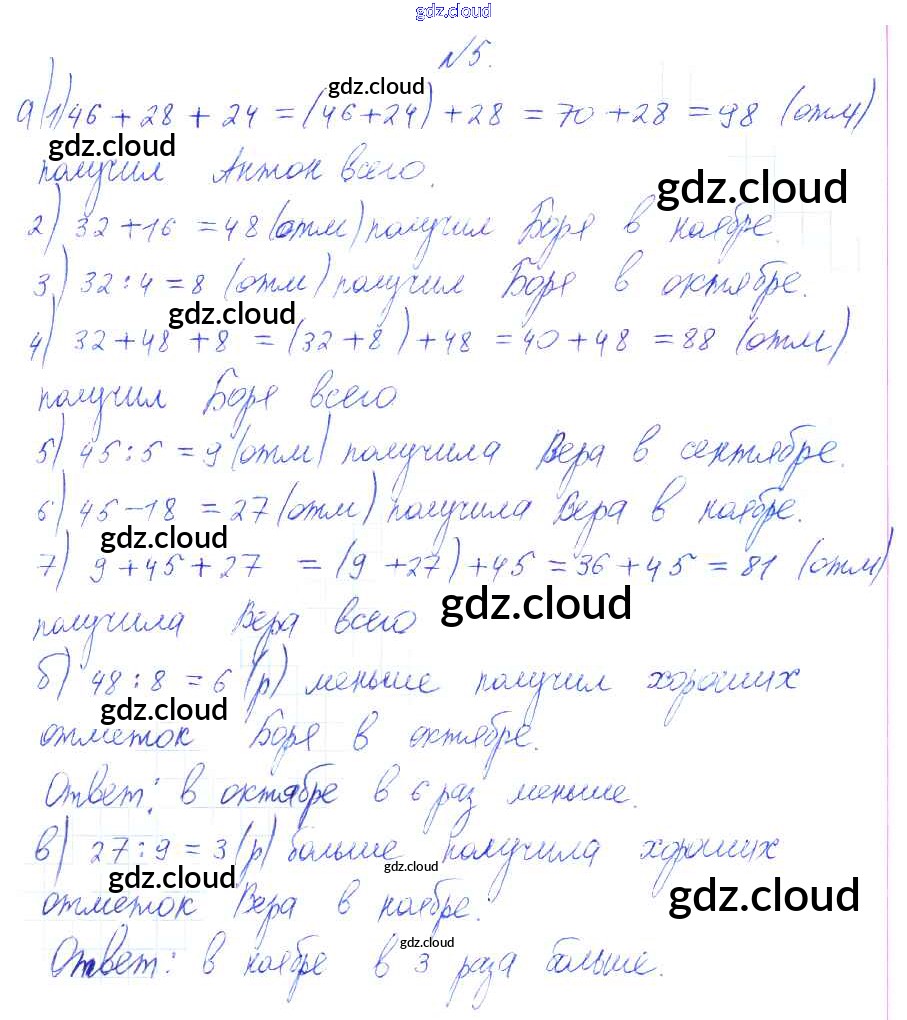 gdz.cloud
№5.
gdz.cloud
а) 1) 46 + 28 + 24 = (46 + 24) + 28 = 70 + 28 = 98 (отм)
gdz.cloud
получил Антон всего.
gdz.cloud
2) 32 + 16 = 48 (отм) получил Боря в ноябре.
3) 32 : 4 = 8 (отм) получил Боря в октябре.
gdz.cloud
4) 32 + 48 + 8 = (32 + 8) + 48 = 40 + 48 = 88 (отм)
получил Боря всего
5) 45 : 5 = 9 (отм) получила Вера в сентябре.
6) 45 - 18 = 27 (отм) получила Вера в ноябре.
gdz.cloud
7) 9 + 45 + 27 = (9 + 27) + 45 = 36 + 45 = 81 (отм)
gdz.cloud
получила Вера всего
б) 48 : 8 = 6 (р) меньше получил хороших
gdz.cloud
отметок Боря в октябре.
Ответ: в октябре в 6 раз меньше.
в) 27 : 9 = 3 (р) больше получила хороших
gdz.cloud
gdz.cloud
gdz.cloud
отметок Вера в ноябре.
gdz.cloud
Ответ: в ноябре в 3 раза больше.